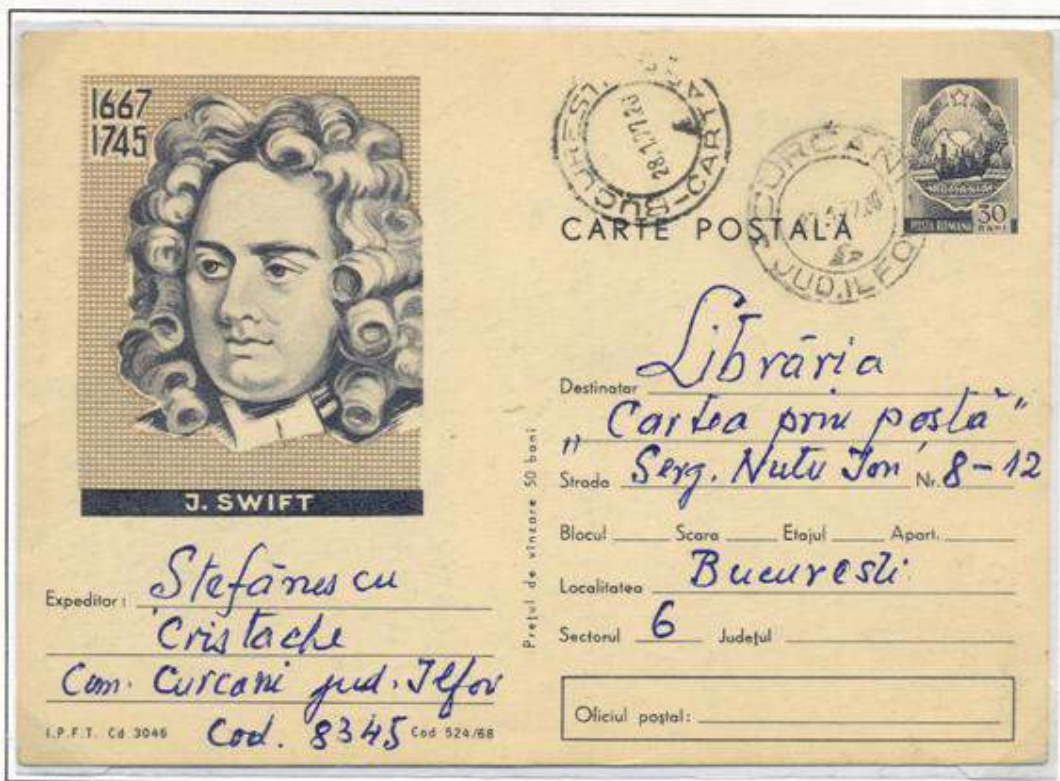 1667
1745
J. SWIFT
Expeditor: Stefănescu
Cristache
Com. Curcani jud. Ilfov
Cod. 8345
I.P.F.T. Cd 3046
Cod 524/68
Prețul de vînzare 50 bani
BUCUREȘT CARTARE
28.1.77.20
CURCANI
JUD. ILFO
POSTA ROMANA
30
BANI
CARTE POȘTALĂ
Destinatar Librăria
„Cartea prin poștă"
Strada Serg. Nutu Ion Nr. 8-12
Blocul Scara Etajul Apart.
Localitatea Bucuresti
Sectorul 6 Județul
Oficiul poștal: